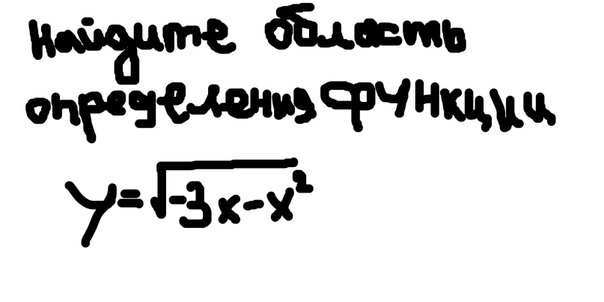 Найдите область
определения функции
y=√-3x-x²